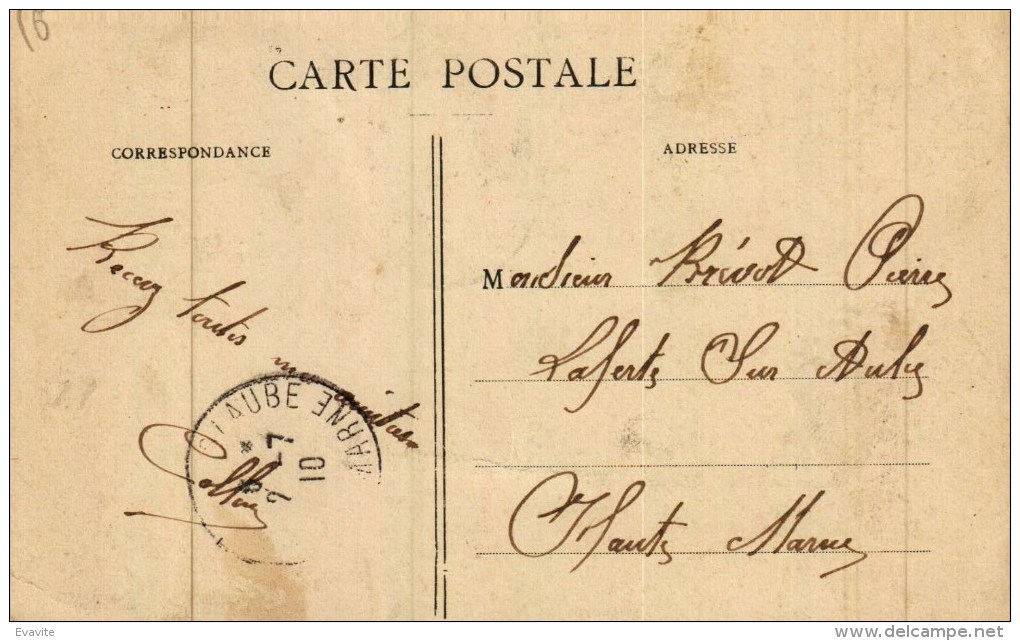 15
CARTE POSTALE
CORRESPONDANCE
ADRESSE
Recevez
toutes
mes amitiés
Monsieur Prévot Pierre
Laferté Sur Aube
Haute Marne
AUBE MARNE
9 -7
10
Evavite
www.delcampe.net